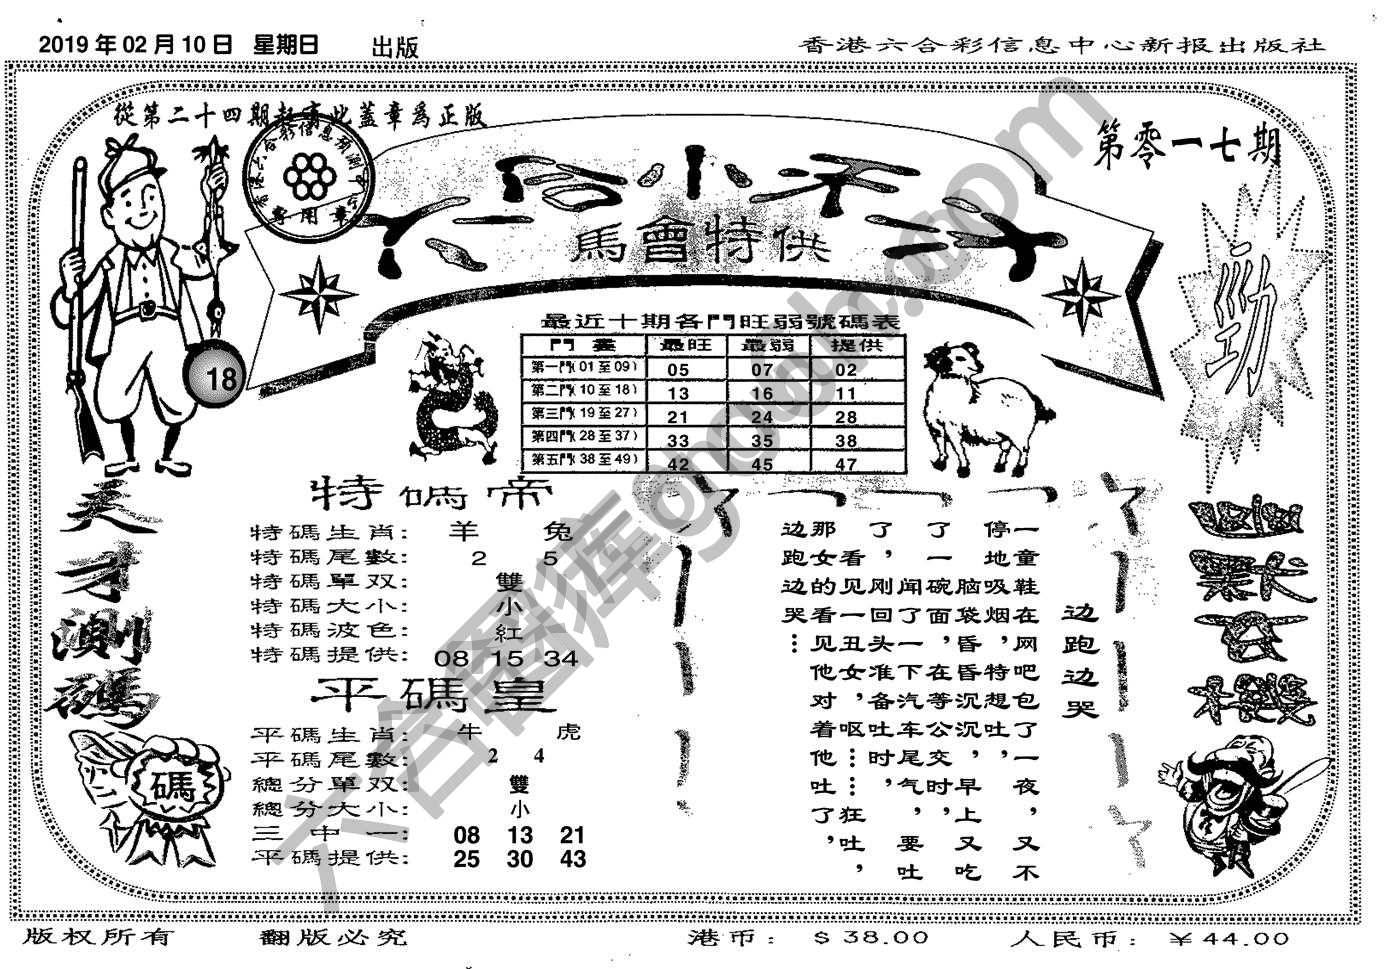 2019 年 02 月 10 日 星期日 出版
香港六合彩信息中心新报出版社
從第二十四期起寄此蓋章爲正版
第零一七期
馬會特供
專用章
18
勁
最近十期各門旺弱號碼表
門蠹 最旺 最弱 提供
第一門(01至09) 05 07 02
第二門(10至18) 13 16 11
第三門(19至27) 21 24 28
第四門(28至37) 33 35 38
第五門(38至49) 42 45 47
天才測碼
特碼帝
特碼生肖: 羊 兔
特碼尾數: 2 5
特碼單双: 雙
特碼大小: 小
特碼波色: 紅
特碼提供: 08 15 34
平碼皇
平碼生肖: 牛 虎
平碼尾數: 2 4
總分單双: 雙
總分大小: 小
三中一: 08 13 21
平碼提供: 25 30 43
碼
边跑边哭
一童鞋在网吧包了一夜，又不
停地吸烟，特想吐，
脑袋昏昏沉沉，早上又吃
了一碗面，在等公交时，
闻了一下汽车尾气，要吐
了，刚回头准备吐时，
看见一丑女，呕……狂吐，
那女的看见他对着他吐了，
边跑边哭…
版权所有 翻版必究
港币: $ 38.00 人民币: ¥ 44.00